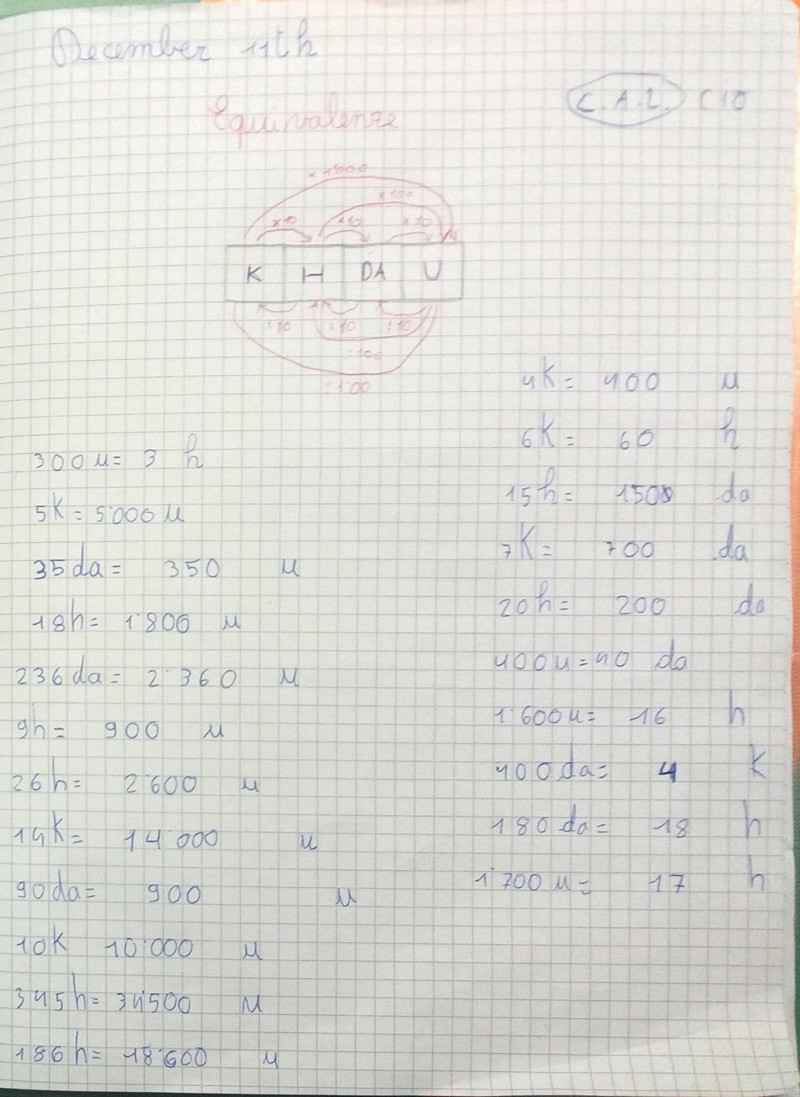 December 11th
C.A.2. C10
Equivalenze
×1000
×100
×10 ×10 ×10
K H DA U
:10 :10 :10
:100
:100
300u= 3 h
5K= 5'000 u
35da= 350 u
18h= 1'800 u
236da= 2'360 u
9h= 900 u
26h= 2'600 u
14K= 14'000 u
90da= 900 u
10K 10'000 u
345h= 34'500 u
186h= 18'600 u
4K= 400 u
6K= 60 h
15h= 1500 da
7K= 700 da
20h= 200 da
400u= 40 da
1'600u= 16 h
400da= 4 K
180da= 18 h
1'700u= 17 h